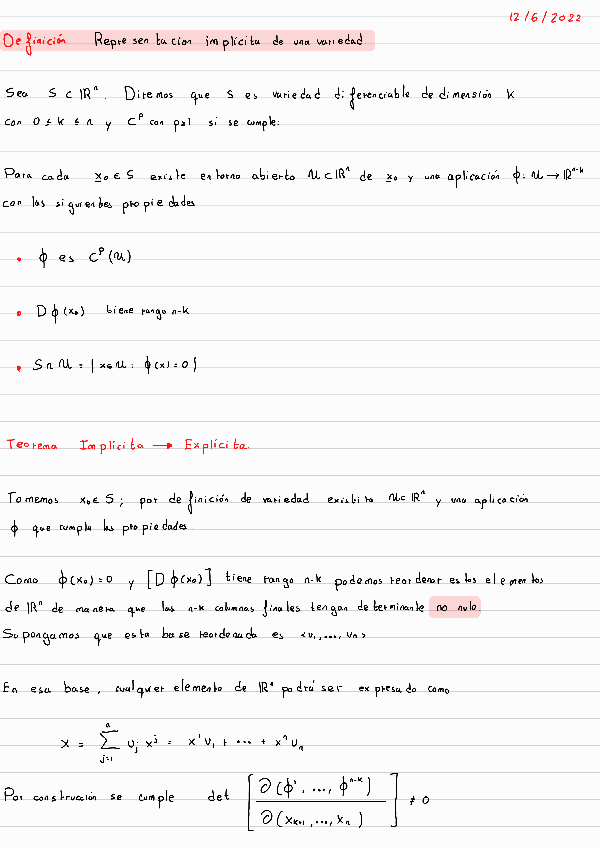 12/6/2022
Definición Representación implícita de una variedad
Sea S ⊂ ℝⁿ. Diremos que S es variedad diferenciable de dimensión k
con 0 ≤ k ≤ n y Cᵖ con p≥1 si se cumple:
Para cada x₀ ∈ S existe entorno abierto U ⊂ ℝⁿ de x₀ y una aplicación ϕ: U → ℝⁿ⁻ᵏ
con las siguientes propiedades
• ϕ es Cᵖ(U)
• Dϕ(x₀) tiene rango n-k
• S∩U = {x∈U : ϕ(x) = 0}
Teorema Implícita → Explícita.
Tomemos x₀ ∈ S; por definición de variedad existirá U⊂ℝⁿ y una aplicación
ϕ que cumpla las propiedades
Como ϕ(x₀) = 0 y [Dϕ(x₀)] tiene rango n-k podemos reordenar estos elementos
de ℝⁿ de manera que las n-k columnas finales tengan determinante no nulo.
Supongamos que esta base reordenada es <v₁, ..., vₙ>
En esa base, cualquier elemento de ℝⁿ podrá ser expresado como
x = ∑_{j=1}^{n} v_j x^j = x¹v₁ + ... + xⁿvₙ
Por construcción se cumple det [∂(ϕ¹, ..., ϕⁿ⁻ᵏ) / ∂(x_{k+1}, ..., x_n)] ≠ 0